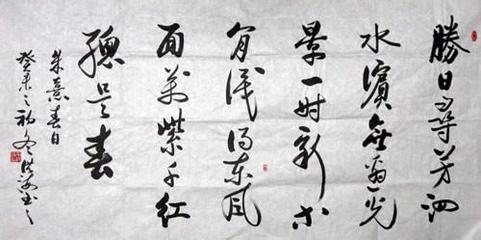 勝日尋芳泗
水濱無邊光
景一時新等
閒識得東風
面萬紫千紅
總是春
朱熹春日
癸未之初冬洪書之